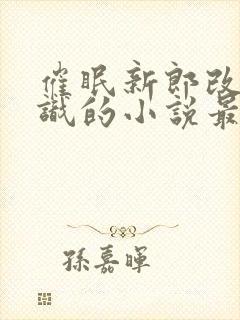 催眠新郎改
識的小說最
孫嘉暉